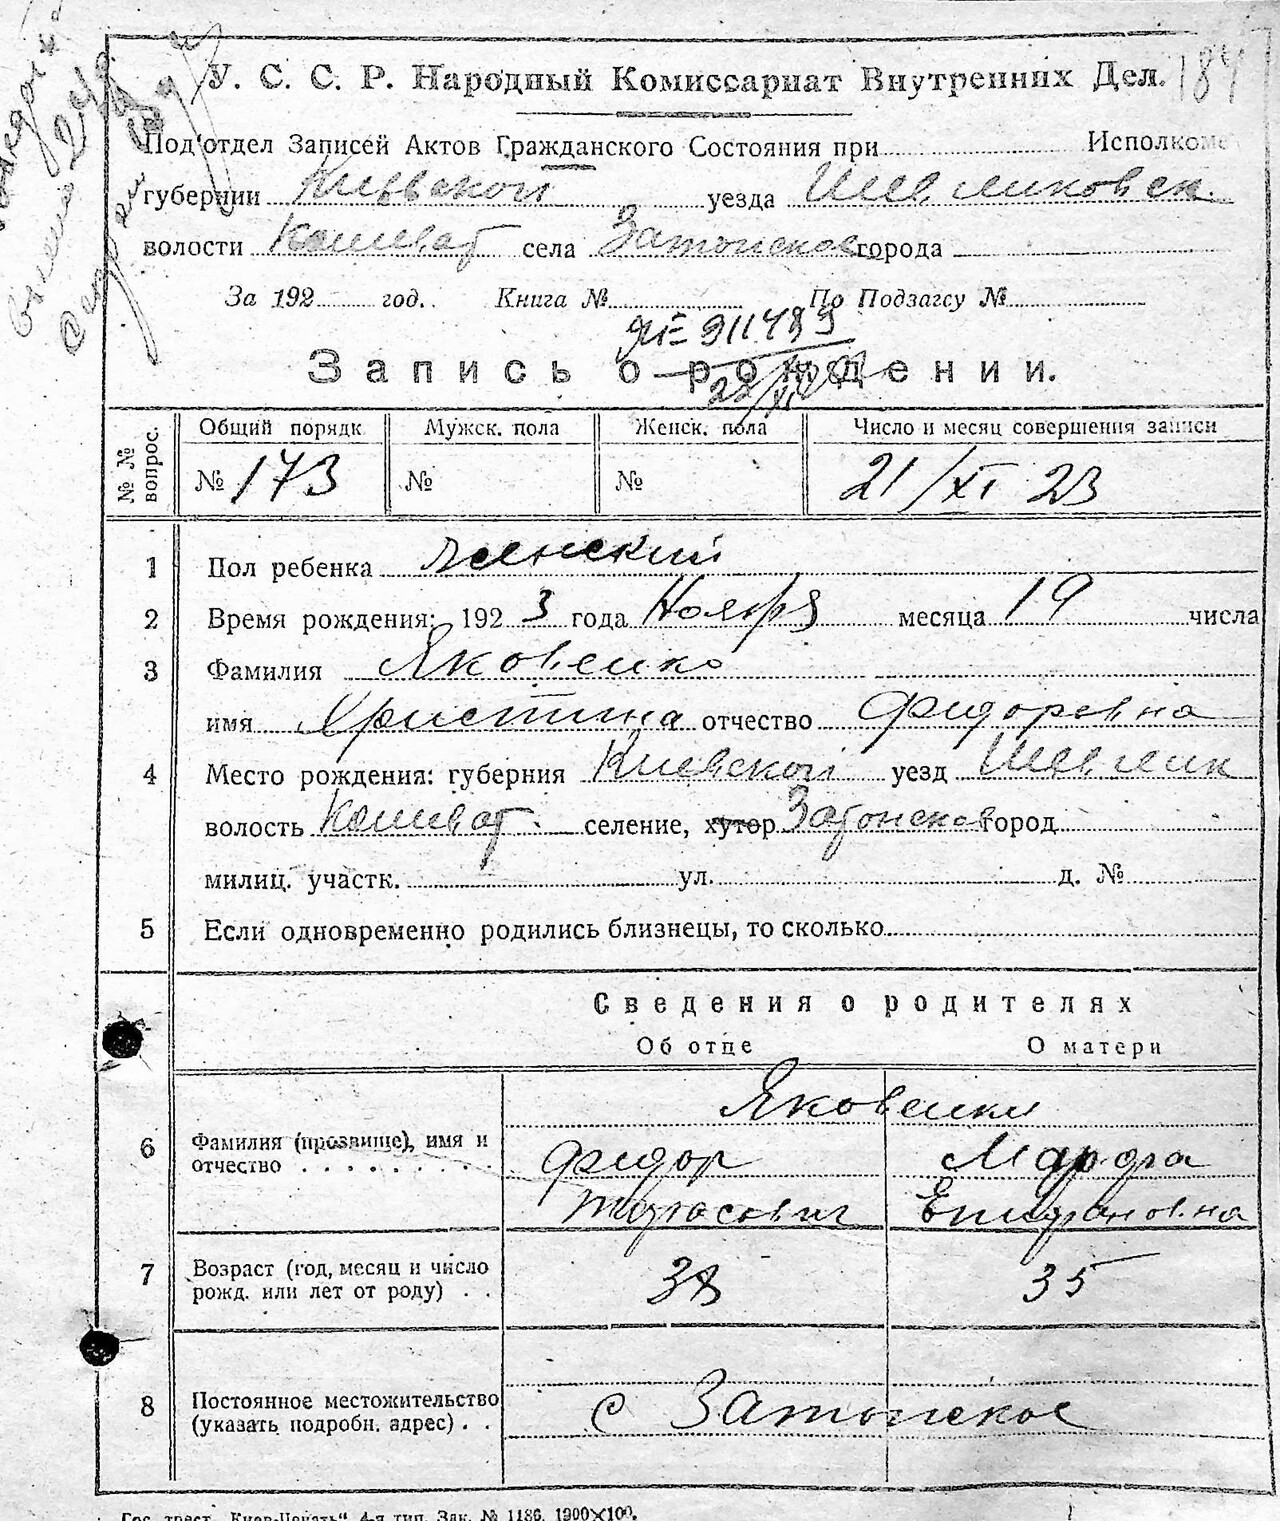 184
У. С. С. Р. Народный Комиссариат Внутренних Дел.
Под'отдел Записей Актов Гражданского Состояния при Исполкоме
губернии Киевской уезда
волости Кошеват села Затонское города
За 192 год. Книга № По Подзагсу №
Запись о рождении.
№ № вопрос. Общий порядк Мужск. пола Женск. пола Число и месяц совершения записи
№ 173 № № 21/XI 23
1 Пол ребенка Женский
2 Время рождения: 1923 года Ноября месяца 19 числа
3 Фамилия Яковенко
имя Христина отчество Фидоровна
4 Место рождения: губерния Киевской уезд
волость Кошеват. селение, хутор Затонское город
милиц. участк. ул. д. №
5 Если одновременно родились близнецы, то сколько
Сведения о родителях
Об отце О матери
Яковенки
6 Фамилия (прозвище), имя и отчество Фидор Марфа
Тарасович Епифановна
7 Возраст (год, месяц и число рожд. или лет от роду) 38 35
8 Постоянное местожительство (указать подробн. адрес) с Затонское
Гос. трест „Киев-Печать" 4-я тип. Зак. № 1186. 1900×100.